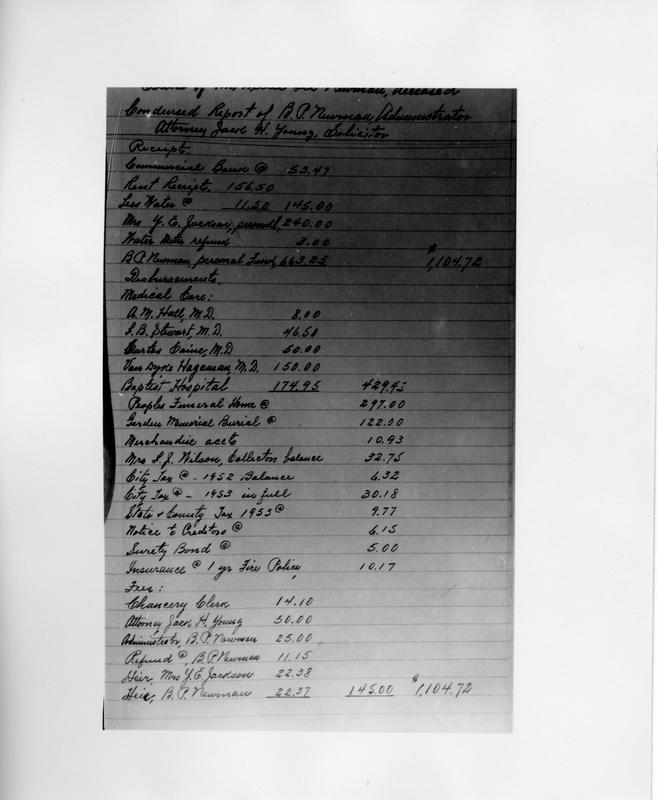 Newman, deceased
Condensed Report of B. P. Newman, Administrator
Attorney Jack H. Young, Solicitor
Receipts.
Commercial Bank @ 53.47
Rent Receipts 156.50
Less Water @ 11.50 145.00
Mrs Y. E. Jackson, personal, 240.00
Water Meter refund 3.00
B P Newman, personal Fund, 663.25 $1,104.72
Disbursements.
Medical Care:
A. M. Hall, M.D. 8.00
S. B. Stewart, M.D. 46.50
Curtis Caine, M.D 50.00
Van Dyke Hagaman, M.D. 150.00
Baptist Hospital 174.95 429.45
Peoples Funeral Home @ 297.00
Garden Memorial Burial @ 122.00
Merchandise accts 10.93
Mrs S. J. Wilson, Collectors balance 32.75
City Tax @ - 1952 Balance 6.32
City Tax @ - 1953 in full 30.18
State & County Tax 1953 @ 9.77
Notice to Creditors @ 6.15
Surety Bond @ 5.00
Insurance @ 1 yr Fire Policy 10.17
Fees:
Chancery Clerk 14.10
Attorney Jack H. Young 50.00
Administrator, B. P. Newman 25.00
Refund @, B. P. Newman 11.15
Heir, Mrs Y. E. Jackson 22.38
Heir, B. P. Newman 22.37 145.00 $1,104.72